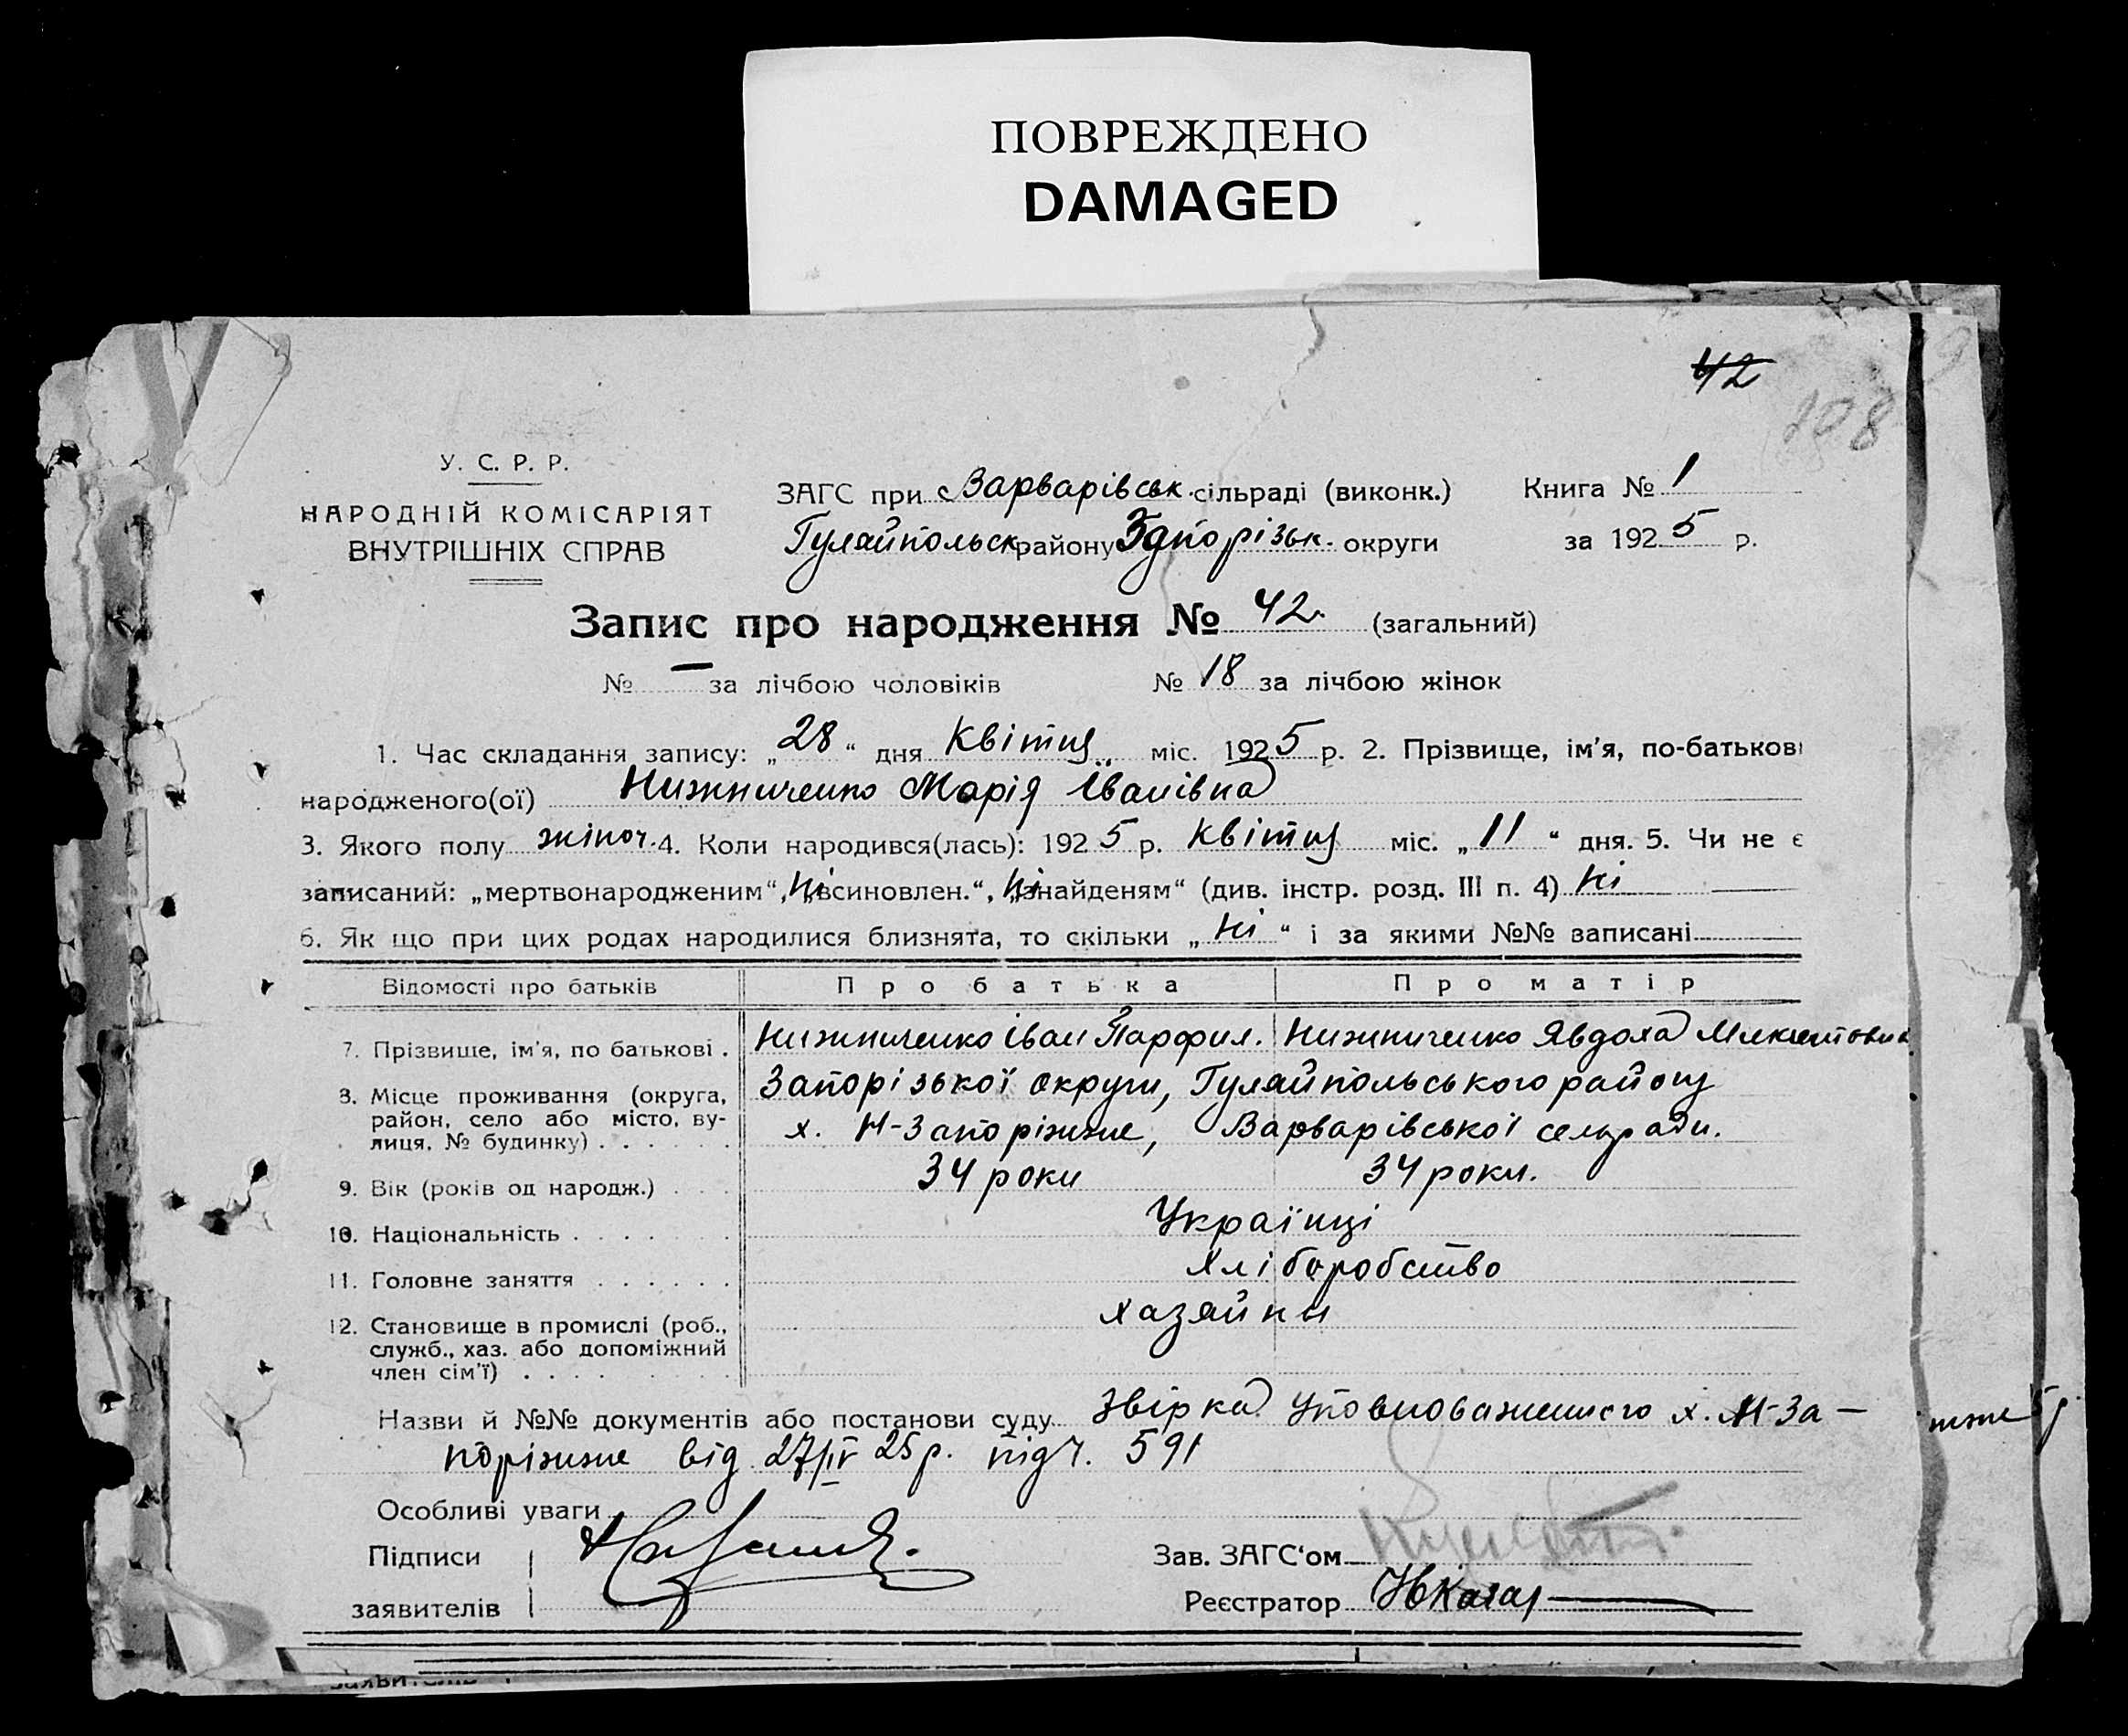 ПОВРЕЖДЕНО
DAMAGED
42
108
У. С. Р. Р.
НАРОДНІЙ КОМІСАРІЯТ
ВНУТРІШНІХ СПРАВ
ЗАГС при Варварівськ. сільраді (виконк.)
Гуляйпольськ району Запорізьк. округи
Книга № 1
за 1925 р.
Запис про народження № 42. (загальний)
№ — за лічбою чоловіків № 18 за лічбою жінок
1. Час складання запису: „28“ дня Квітня міс. 1925 р. 2. Прізвище, ім'я, по-батькові
народженого(ої) Нижниченко Марія Іванівна
3. Якого полу жіноч. 4. Коли народився(лась): 1925 р. Квітня міс. „11“ дня. 5. Чи не є
записаний: „мертвонародженим“, Ні „всиновлен.“, Ні „знайденям“ (див. інстр. розд. III п. 4) Ні
6. Як що при цих родах народилися близнята, то скільки „Ні“ і за якими №№ записані
Відомості про батьків Про батька Про матір
7. Прізвище, ім'я, по батькові . Нижниченко Іван Парфил. Нижниченко Явдоха
8. Місце проживання (округа, Запорізької округи, Гуляйпольського району
район, село або місто, ву-
лиця, № будинку) . . . х. Н-Запоріжжє, Варварівської сельради.
9. Вік (років од народж.) . . . 34 роки 34 роки.
10. Національність . . . . . . . Українці
11. Головне заняття . . . . . . Хліборобство
12. Становище в промислі (роб., хазяйни
служб., хаз. або допоміжний
член сім'ї) . . . .
Назви й №№ документів або постанови суду Звірка Уповноваженного х. Н-За-
поріжжє від 27/IV 25 р. під ч. 591
Особливі уваги
Підписи
заявителів
Зав. ЗАГС'ом
Реєстратор